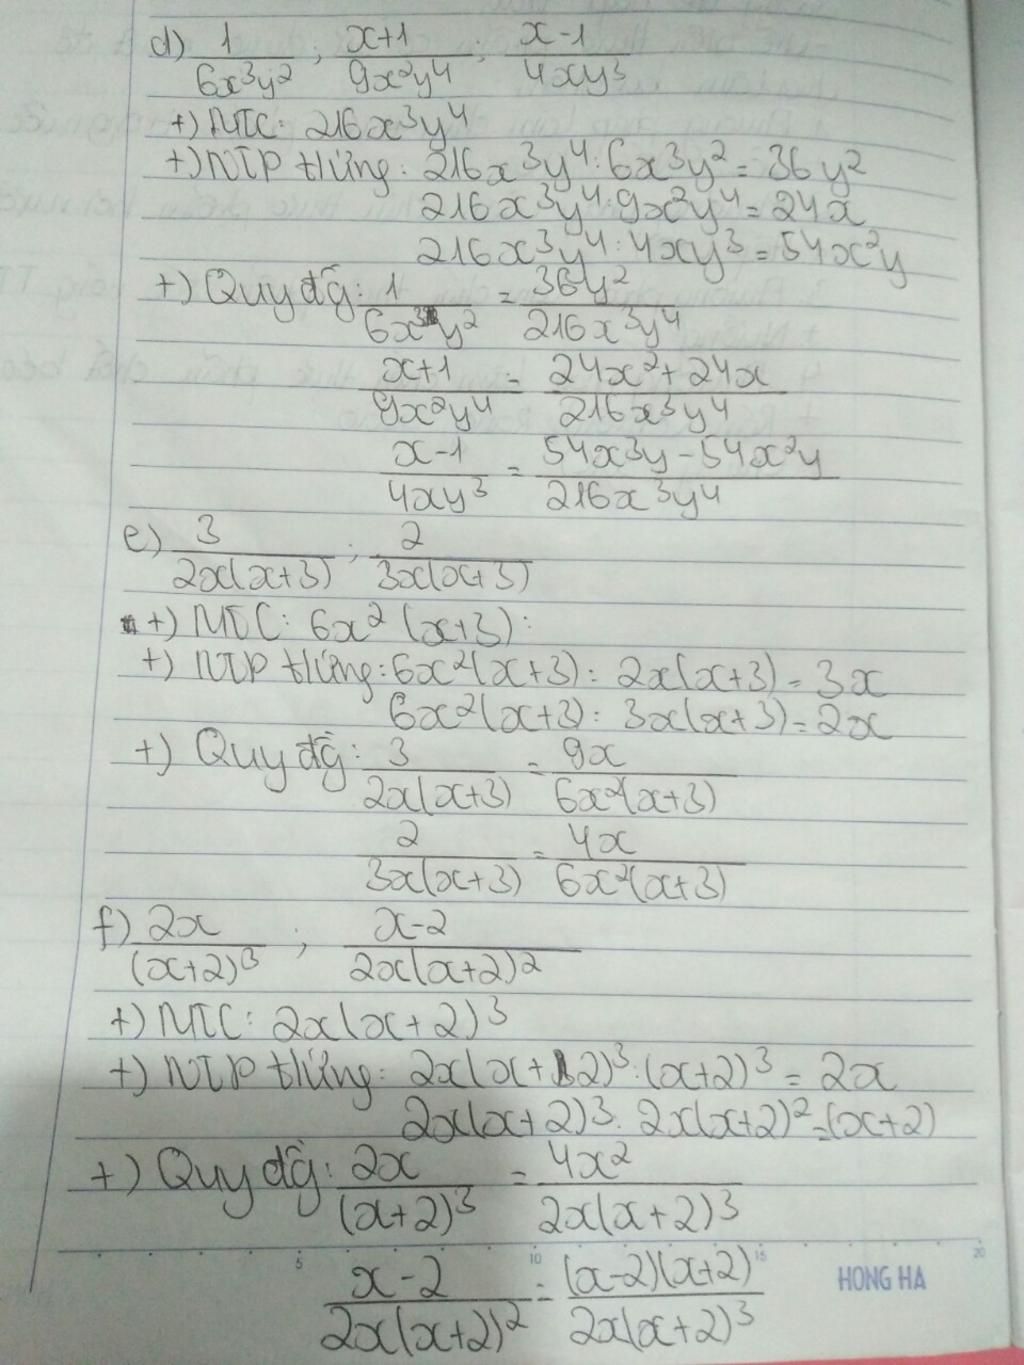 d) 1/6x³y² ; x+1/9x²y⁴ ; x-1/4xy³
+) MTC: 216x³y⁴
+) NTP từng: 216x³y⁴ : 6x³y² = 36y²
216x³y⁴ : 9x²y⁴ = 24x
216x³y⁴ : 4xy³ = 54x²y
+) Quy đg: 1/6x³y² = 36y²/216x³y⁴
x+1/9x²y⁴ = 24x²+24x/216x³y⁴
x-1/4xy³ = 54x³y-54x²y/216x³y⁴
e) 3/2x(x+3) ; 2/3x(x+3)
+) MTC: 6x²(x+3):
+) NTP từng: 6x²(x+3) : 2x(x+3) = 3x
6x²(x+3) : 3x(x+3) = 2x
+) Quy đg: 3/2x(x+3) = 9x/6x²(x+3)
2/3x(x+3) = 4x/6x²(x+3)
f) 2x/(x+2)³ ; x-2/2x(x+2)²
+) MTC: 2x(x+2)³
+) NTP từng: 2x(x+2)³ : (x+2)³ = 2x
2x(x+2)³ : 2x(x+2)² = (x+2)
+) Quy đg: 2x/(x+2)³ = 4x²/2x(x+2)³
5 10 15 20
x-2/2x(x+2)² = (x-2)(x+2)/2x(x+2)³
HONG HA